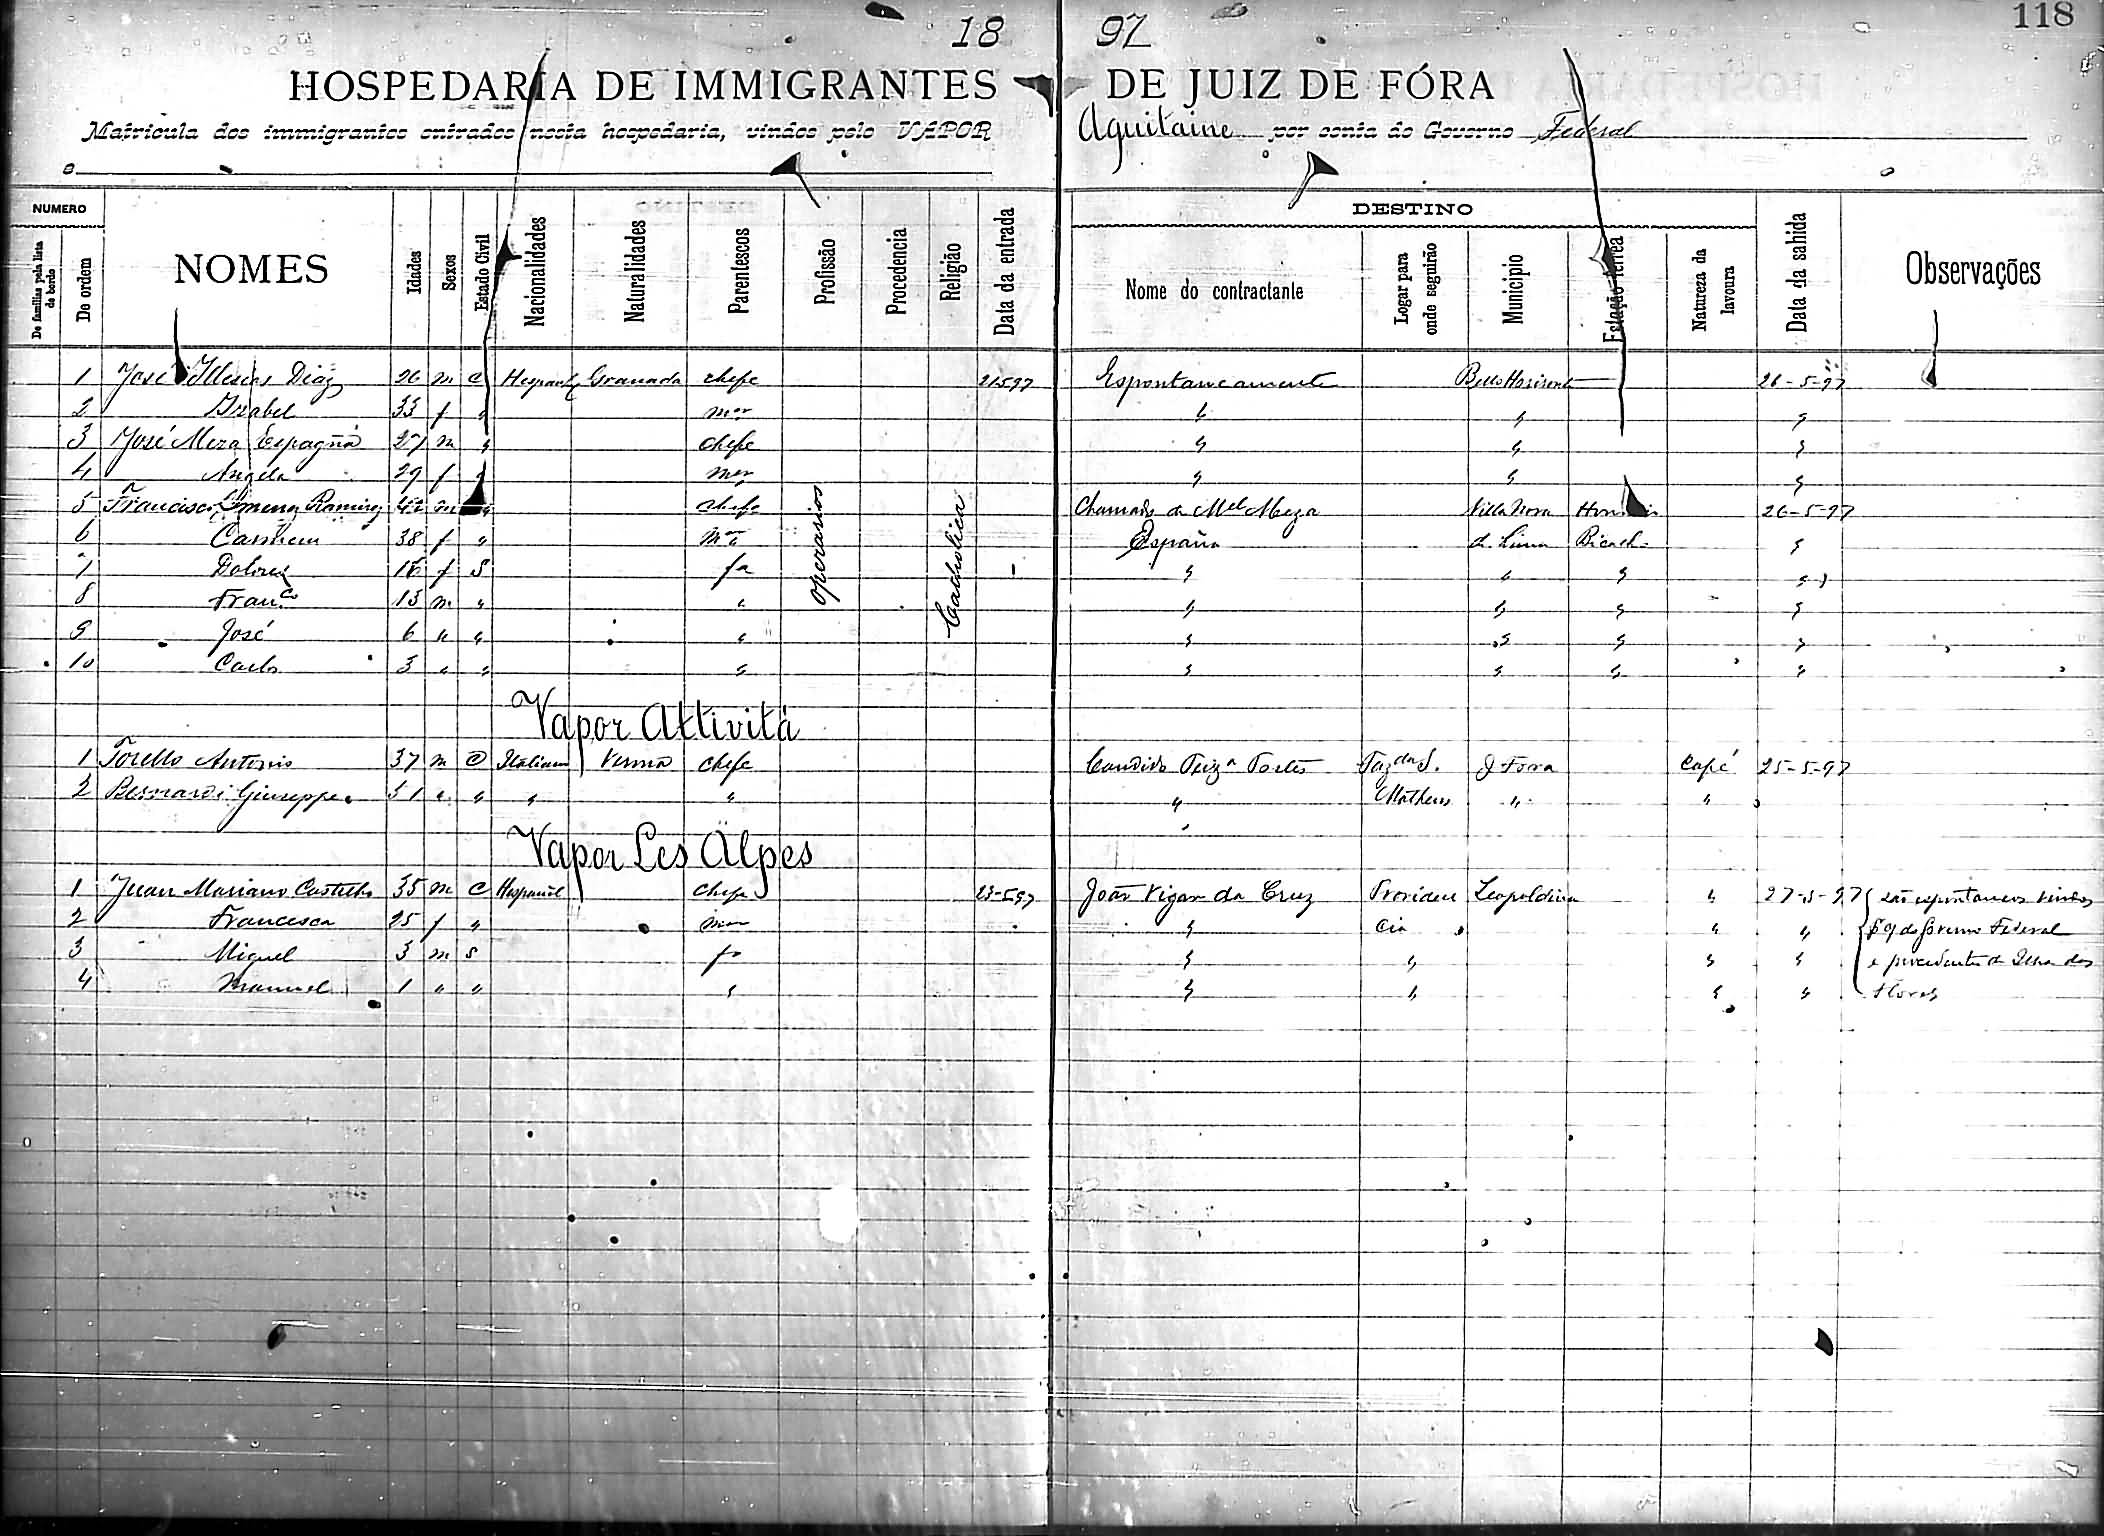 118
18 97
HOSPEDARIA DE IMMIGRANTES DE JUIZ DE FÓRA
Matricula dos immigrantes entrados nesta hospedaria, vindos pelo VAPOR Aquitaine por conta do Governo Federal
NUMERO DESTINO
De familias pela lista de bordo De ordem NOMES Idades Sexos Estado Civil Nacionalidades Naturalidades Parentescos Profissão Procedencia Religião Data da entrada Nome do contractante Logar para onde seguirão Municipio Estação ferrea Natureza da lavoura Data da sahida Observações
1 José Illescas Diaz 26 m c Hespanh Granada chefe 21597 Espontaneamente Bello Horisonte 26-5-97
2 Izabel 33 f " mer " " "
3 José Meza Espagña 27 m " chefe " " "
4 Angela 29 f " mer " " "
5 Francisco Ramirez 42 m " chefe Chamado de Mel Meza Villa Nova 26-5-97
6 38 f " España de Lima "
7 Dolores 16 f S fa " " " "
8 Franco 13 m " " " " " "
9 José 6 " " " " " " "
10 Carlos 3 " " " " " " "
operarios
Catholica
Vapor Attivitá
1 Torello Antonio 37 m C Italiano chefe Candido Teixa Tostes Fazda S. J Fora Café 25-5-97
2 Bernardi Giuseppe 51 " " " " " Matheus " "
Vapor Les Alpes
1 Juan Mariano Castelho 35 m C Hespanh chefe 23-5-97 João Vigar da Cruz Providen Leopoldina " 27-5-97 são espontaneos vindos
2 Francesca 25 f " mer " cia " " do Governo Federal
3 Miguel 3 m S fo " " " " e procedente da Ilha das
4 Manuel 1 " " " " " " " Flores